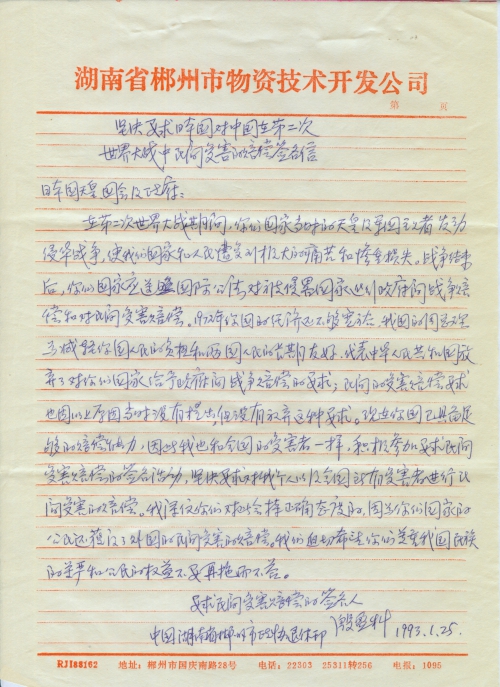 湖南省郴州市物资技术开发公司
第 页
坚决要求日本国对中国在第二次
世界大战中民间受害的赔偿签名信
日本国天皇国会及政府：
在第二次世界大战期间，你们国家当时的天皇及军国主义者发动
侵华战争，使我们国家和人民遭受到极大的痛苦和惨重损失。战争结束
后，你们国家应遵照国际公法对被侵略国家进行政府间战争赔
偿和对民间受害赔偿。1972年你国的经济还不够富裕，我国的周恩来
为减轻你国人民的负担和两国人民的长期友好，代表中华人民共和国放
弃了对你们国家给予政府间战争赔偿的要求；民间的受害赔偿要求
也因以上原因当时没有提出，但没有放弃这种要求。现在你国已具备足
够的赔偿能力，因此我也和全国的受害者一样，积极参加要求民间
受害赔偿的签名活动，坚决要求对我个人以及全国所有受害者进行民
间受害的赔偿。我深信你们对此会择正确态度的，因为你们国家的
公民还获得了外国的民间受害的赔偿。我们迫切希望你们尊重我国民族
的尊严和公民的权益不要再拖而不答。
要求民间受害赔偿的签名人
中国湖南省郴州市 退休干部 1993.1.25.
RJ188162 地址：郴州市国庆南路28号 电话：22303 25311转256 电报：1095